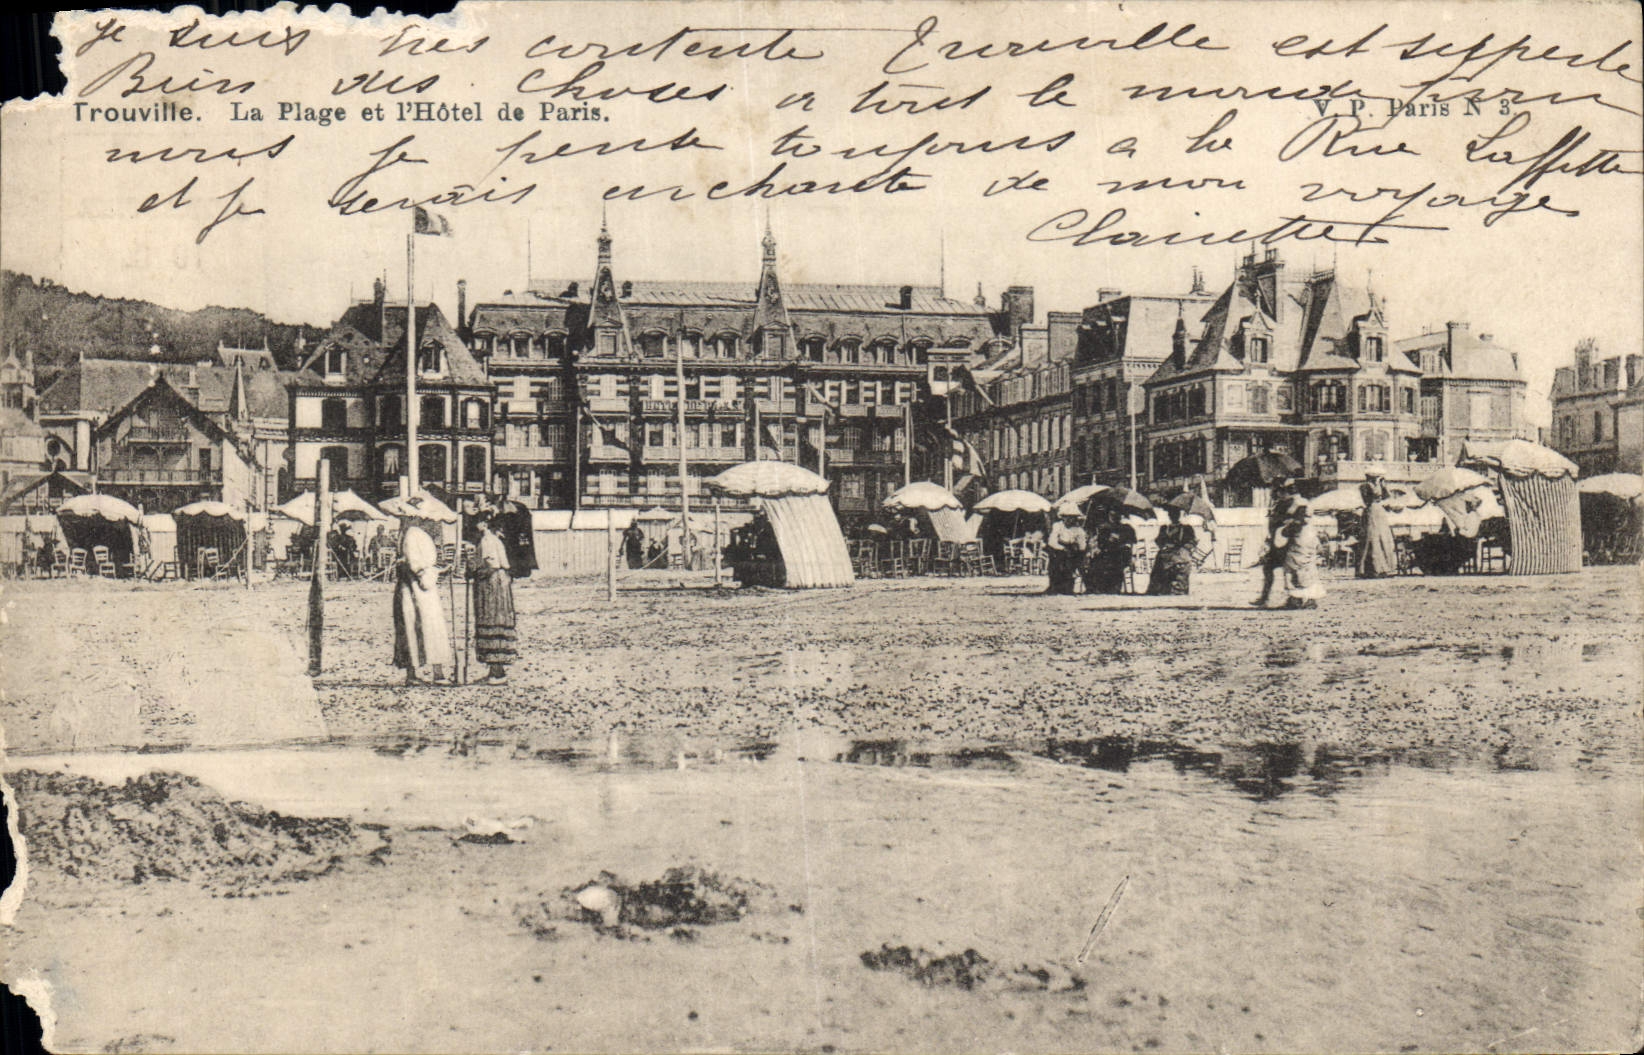 je suis très contente Trouville est superbe
Bien des choses a tout le monde pour
Trouville. La Plage et l'Hôtel de Paris.
V. P. Paris N 3.
nous je pense toujours a la Rue Laffitte
et je serais enchante de mon voyage
Clairette